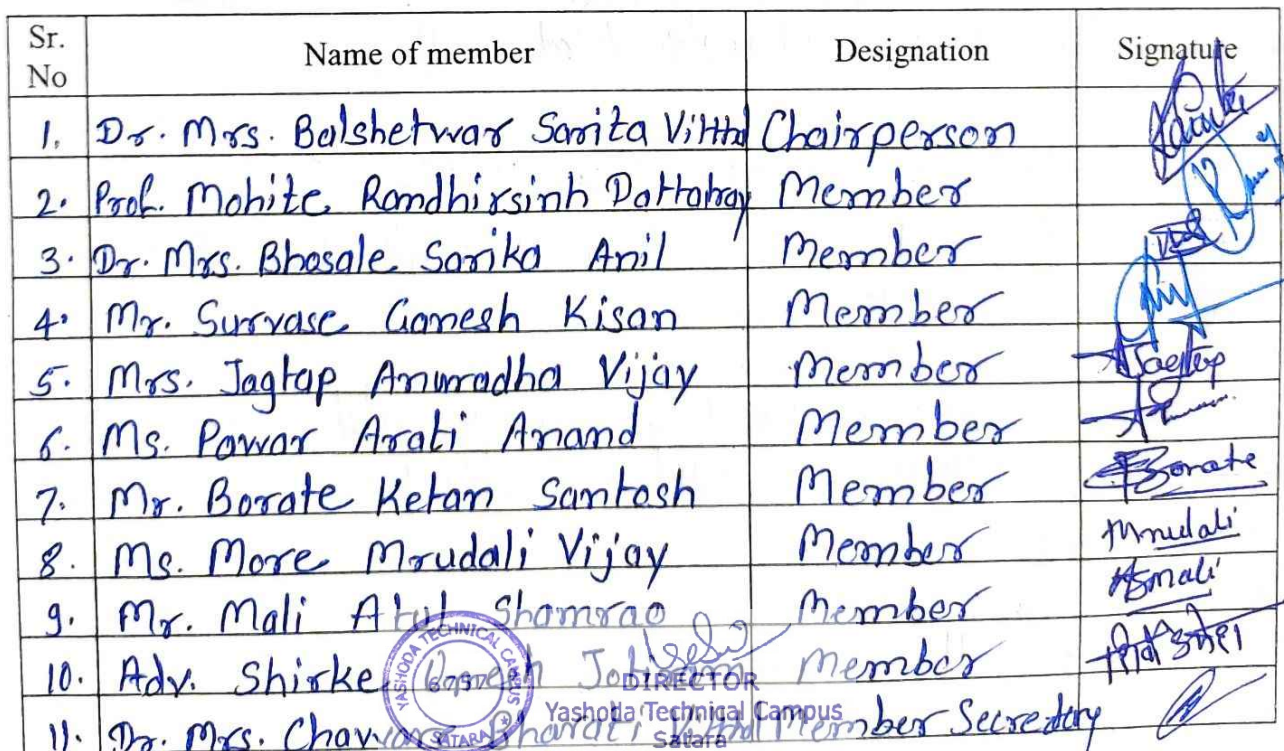 Sr. No Name of member Designation Signature
1. Dr. Mrs. Balshetwar Sarita Vitthal Chairperson
2. Prof. Mohite Randhirsinh Dattatray Member
3. Dr. Mrs. Bhosale Sarika Anil Member
4. Mr. Survase Ganesh Kisan Member
5. Mrs. Jagtap Anuradha Vijay Member Jagtap
6. Ms. Pawar Arati Anand Member
7. Mr. Borate Ketan Santosh Member Borate
8. Ms. More Mrudali Vijay Member Mrudali
9. Mr. Mali Atul Shamrao Member Asmali
10. Adv. Shirke Member
11. Dr. Mrs. Chavan Bharati Member Secretary
YASHODA TECHNICAL CAMPUS
SATARA
DIRECTOR
Yashoda Technical Campus
Satara